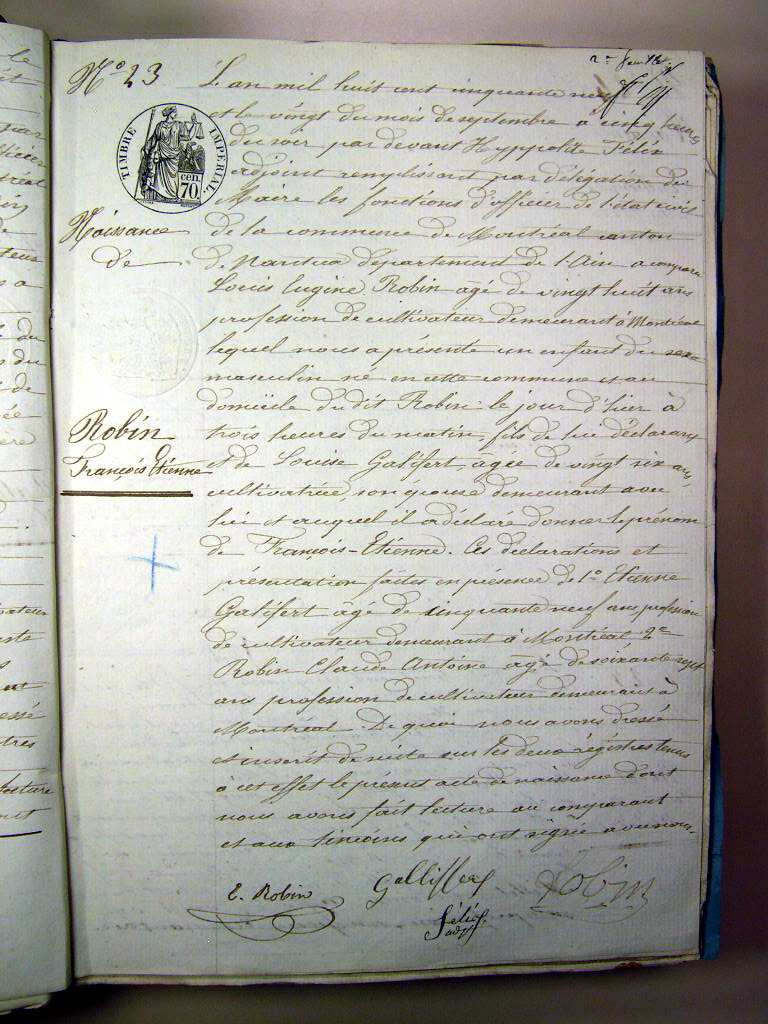 N° 23
TIMBRE IMPERIAL
70 cen.
Naissance
de
Robin
François Etienne
L'an mil huit cent cinquante neuf
et le vingt du mois de septembre à cinq heures
du soir par devant Hyppolite Félix
adjoint remplissant par délégation du
Maire les fonctions d'officier de l'état civil
de la commune de Montréal canton
de Nantua département de l'Ain a comparu
Louis Eugène Robin agé de vingt huit ans
profession de cultivateur demeurant à Montréal
lequel nous a présenté un enfant du sexe
masculin né en cette commune et au
domicile du dit Robin le jour d'hier à
trois heures du matin, fils de lui déclarant
et de Louise Galifert, agée de vingt six ans,
cultivatrice, son épouse demeurant avec
lui et auquel il a déclaré donner le prénom
de François-Etienne. Ces déclarations et
présentation faites en présence de 1° Etienne
Galifert agé de cinquante neuf ans profession
de cultivateur demeurant à Montréal 2°
Robin Claude Antoine agé de soixante sept
ans profession de cultivateur demeurant à
Montréal. De quoi nous avons dressé
et inscrit de suite sur les deux régistres tenus
à cet effet le présent acte de naissance dont
nous avons fait lecture au comparant
et aux témoins qui ont signé avec nous.
E. Robin Galliffert Robin
Félix
adjt